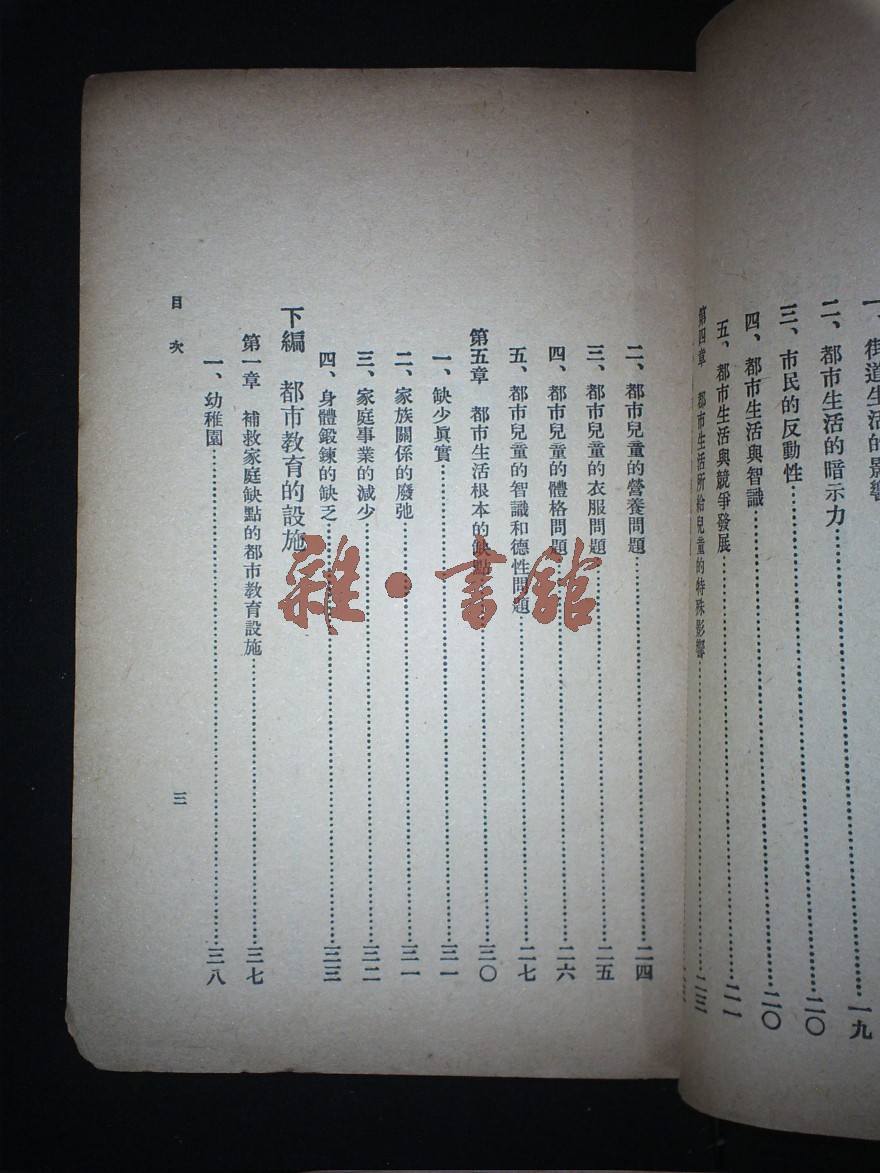 一、街道生活的影響……一九
二、都市生活的暗示力……二〇
三、市民的反動性……二〇
四、都市生活與智識……二〇
五、都市生活與競爭發展……二一
第四章 都市生活所給兒童的特殊影響……二三
二、都市兒童的營養問題……二四
三、都市兒童的衣服問題……二五
四、都市兒童的體格問題……二六
五、都市兒童的智識和德性問題……二七
第五章 都市生活根本的缺點……三〇
一、缺少眞實……三一
二、家族關係的廢弛……三一
三、家庭事業的減少……三二
四、身體鍛鍊的缺乏……三三
下編 都市教育的設施
第一章 補救家庭缺點的都市教育設施……三七
一、幼稚園……三八
目次
三
雜·書館